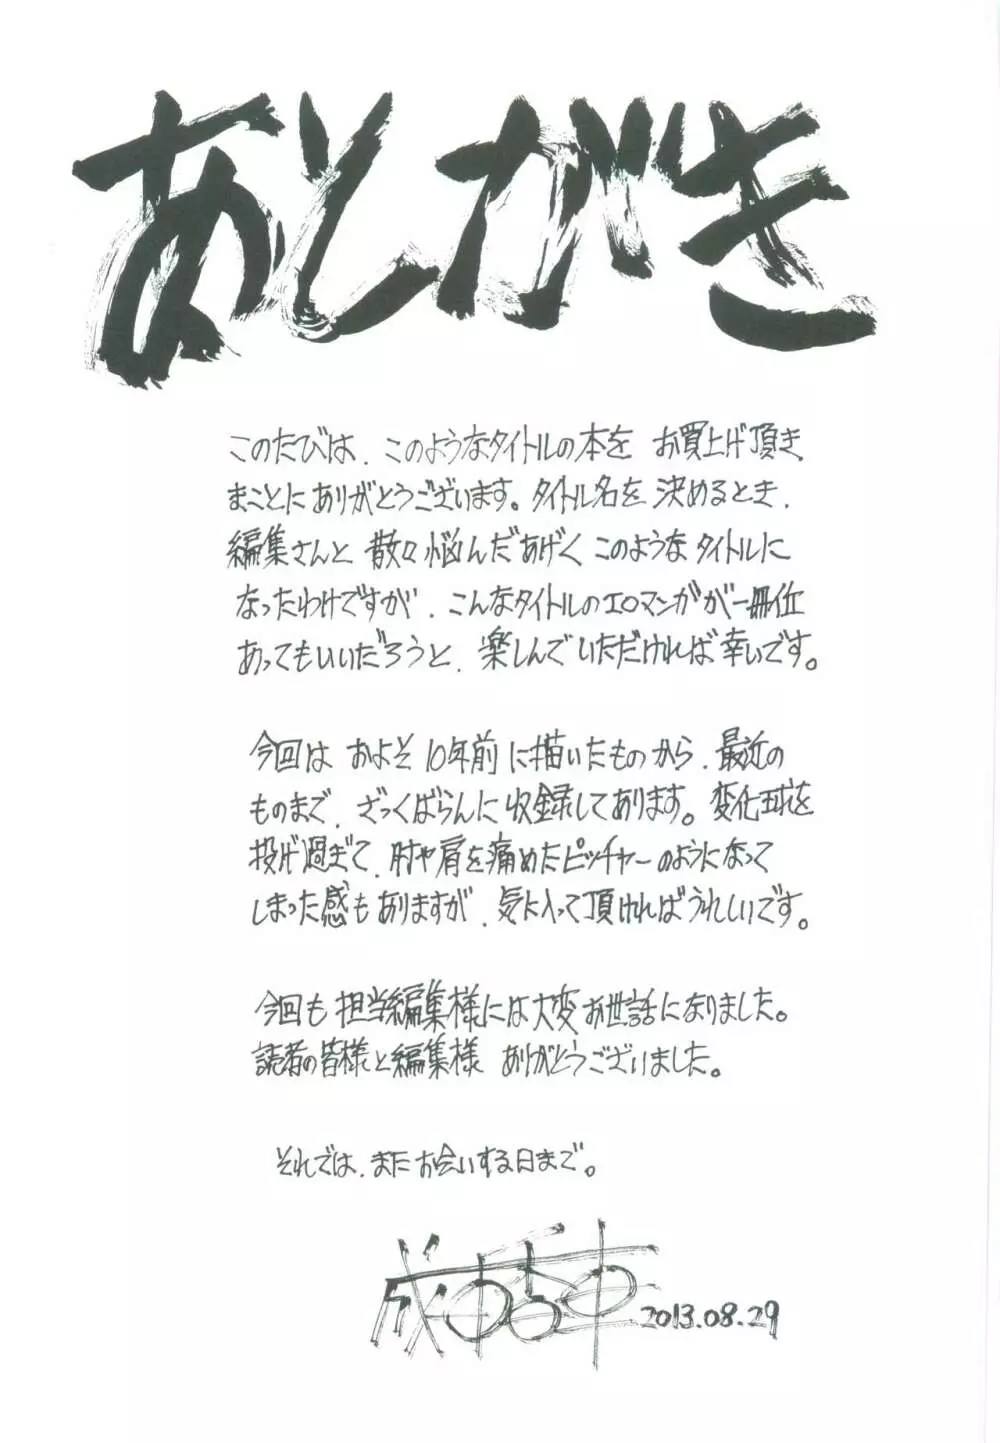 あとがき
このたびは、このようなタイトルの本を お買上げ頂き
まことにありがとうございます。タイトル名を 決めるとき、
編集さんと 散々悩んだあげく このような タイトルに
なったわけですが、こんなタイトルのエロマンガが一冊位
あってもいいだろうと、楽しんでいただければ幸いです。
今回は およそ 10年前に描いたものから、最近の
ものまで、ざっくばらんに 収録してあります。変化球を
投げ過ぎて、肘や肩を痛めたピッチャーのようになって
しまった感もありますが、気に入って頂ければうれしいです。
今回も 担当編集様には大変お世話になりました。
読者の皆様と編集様 ありがとうございました。
それでは、またお会いする日まで。
2013.08.29